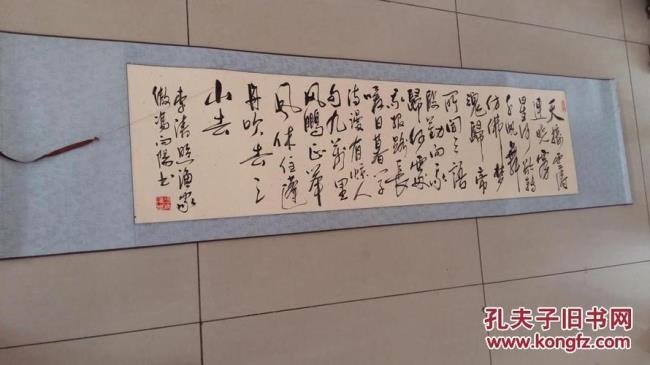 天接雲濤
連曉霧
星河欲轉
千帆舞
仿佛梦
魂歸帝
所闻天語
殷勤问我
歸何處
我报路長
嗟日暮学
诗漫有惊人
句九萬里
风鹏正举
风休住蓬
舟吹去三
山去
李清照渔家
傲冯向阳书
孔夫子旧书网
www.kongfz.com